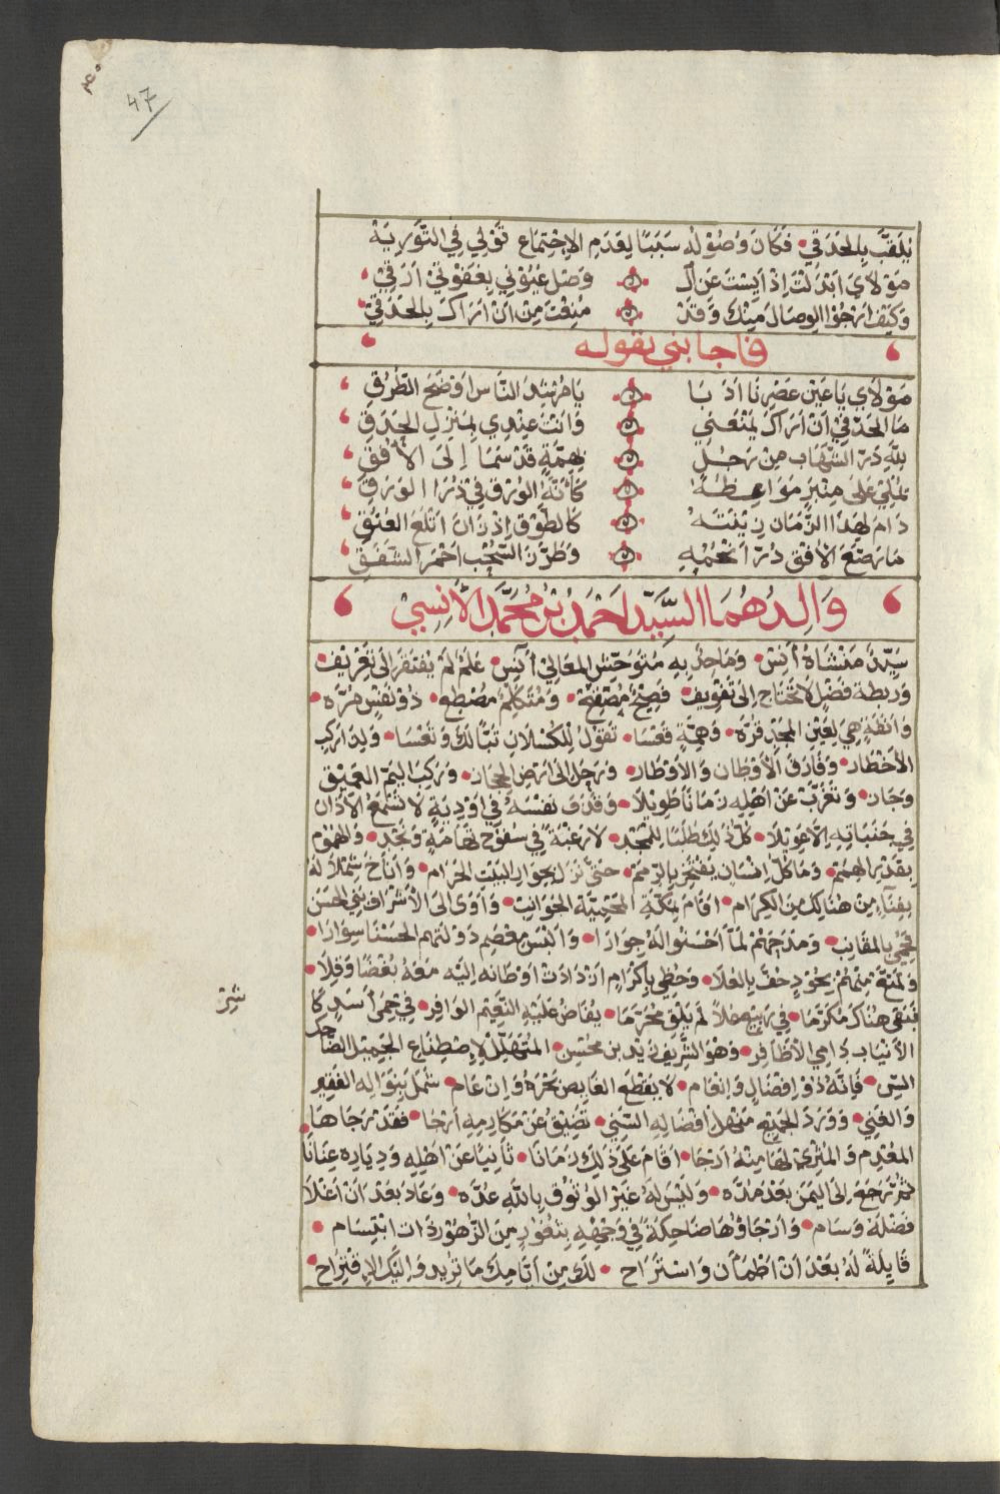 47
يُلَقَّبُ بِالحَدَقِي فَكَانَ وُصُوْلُهُ سَبَبًا لِعَدَمِ الاِجْتِمَاعِ قَوْلِي فِي التَّوْرِيَةْ
مَوْلَايَ ابْدَلْتَ اِذْ اَيِسْتَ عَنْ لَكَ وَصْلَ عُيُوْنِي بِعَقْوَتِيْ اَرَقِيْ
وَكَيْفَ ارْجُوْ الوِصَالَ مِنْكَ وَقَدْ مُنِعْتُ مِنْ اَنْ اَرَاكَ بِالحَدَقِيْ
فاجابني بقوله
مَوْلَاي يَا عَيْنَ عَصْرِنَا اَدَبَا يَا مُرْشِدَ النَّاسِ اَوْضَحَ الطُّرُقِ
مَا الحَدَقِيْ اَنْ اَرَاكَ يَمْنَعُنِي وَاَنْتَ عِنْدِي بِمَنْزِلِ الحَدَقِ
لِلَّهِ دَرُّ الشِّهَابِ مِنْ رَجُلٍ بِهِمَّةٍ قَدْ سَمَا اِلَى الأُفُقِ
يُمْلِيْ عَلَى مِنْبَرِ مَوَاعِظَهُ كَاَنَّهُ الوُرْقُ فِيْ ذُرَا الوَرَقِ
دَامَ لِهَذَا الزَّمَانِ زِيْنَتَهُ كَالطَّوْقِ اِذْ زَانَ اَتْلَعَ العُنُقِ
مَا رَصَّعَ الأُفْقَ دُرُّ اَنْجُمِهِ وَطَرَّزَ السُّحْبَ اَحْمَرُ الشَّفَقِ
وَالِدُهُمَا السَّيِّد اَحْمَدُ بْنُ مُحَمَّدِ الأَنِسِيْ
سَيِّدٌ مَنْشَاهُ أَنِسْ وَمَاجِدٌ بِهِ مُتَوَحِّشُ المَعَالِيْ آنِسْ عَلَمٌ لَمْ يَفْتَقِرْ اِلَى تَعْرِيْفْ
وَرَبْطَةُ فَضْلٍ لَا تَحْتَاج اِلَى تَفْوِيف فَصِيْحٌ مِصْقَعْ وَمُتَكَلِّمٌ مُضْطَلِعْ ذُوْ نَفْسٍ مُرَّهْ
وَاَنَفَةٍ هِيَ لِعَيْنِ المَجْدِ قُرَّهْ وَهِمَّةٍ قَعْسَا تَقُوْلُ لِلْكَسْلَانِ تَبًّا لَكَ وَتَعْسَا وَلِذَا رَكِبَ
الأَخْطَارْ وَفَارَقَ الأَوْطَانَ وَالأَوْطَارْ وَرَحَلَ اِلَى اَرْضِ الحِجَازْ وَرَكِبَ اليَمَّ العَمِيْقَ
وَجَازْ وَتَغَرَّبَ عَنْ اَهْلِهِ زَمَانًا طَوِيْلَا وَقَذَفَ نَفْسَهُ فِي اَوْدِيَةٍ لَا تَسْمَعُ الآذَانُ
فِي جَنَبَاتِهِ اِلَّا عَوِيْلَا كُلُّ ذَلِكَ طَلَبًا لِلْمَجْدِ لَا رَغْبَةً فِي سُفُوْحِ تِهَامَةَ وَنَجْدِ وَالهُمُوْمُ
بِقَدْرِ الهِمَمْ وَمَا كُلُّ اِنْسَانٍ يَفْتَخِرُ بِالرِّمَمْ حَتَّى نَزَلَ بِجِوَارِ البَيْتِ الحَرَامْ وَاَنَاخَ شِمْلَالَهُ
بِفِنَاءِ مَنْ هُنَالِكَ مِنَ الكِرَامْ اَقَامَ بِمَكَّةَ المَحْمِيَّةِ الجَوَانِبْ وَأَوَى اِلَى الأَشْرَافِ بَنِي الحَسَنِ
المَقَانِبْ وَمَدَحَهُمْ لَمَّا اَحْسَنُوا لَهُ جِوَارَا وَاَلْبَسَ مِعْصَمَ دَوْلَتِهِمِ الحَسْنَا سِوَارَا
وَحَظِيَ بِاِكْرَامٍ ازْدَادَتْ اَوْطَانُهُ اِلَيْهِ مَعَهُ بُغْضًا وَقِلَا
فَبَقِيَ هُنَاكَ مُكَرَّمَا فِي رَبِيْعِ عُلاً لَمْ يَلْقَ مُحَرَّمَا يُفَاضُ عَلَيْهِ النَّعِيْمُ الوَافِرْ فِي حِمَى أَسَدٍ كَا
شِرِ
الأَنْيَابِ دَامِي الأَظَافِرْ وَهُوَ الشَّرِيْفُ زَيْد بن مُحْسِنْ المُتَهَلِّلُ لِاصْطِنَاعِ الجَمِيْلِ الضَّاحِكُ
السِّنْ فَاِنَّهُ ذُوْ اِفْضَالٍ وَاِنْعَامْ لَا يَقْطَعُ الغَايِصُ بَحْرَهُ وَاِنْ عَامْ شَمَلَ بِنَوَالِهِ الفَقِيْرَ
وَالغَنِيْ وَوَرَدَ الجَمِيْعُ مَنْهَلَ اِفْضَالِهِ السَّنِيْ تَضِيْقُ عَنْ مَكَارِمِهِ اَرْجَا فَقَدْ رَجَاهَا
المُعْدِمُ وَالمُثْرِيْ لَهَا مِنْهُ اَرْجَا اَقَامَ عَلَى ذَلِكَ زَمَانَا ثَانِيًا عَنْ اَهْلِهِ وَدِيَارِهِ عِنَانَا
ثُمَّ رَجَعَ اِلَى اليَمَنِ بَعْدَ مُدَّهْ وَلَيْسَ لَهُ غَيْرُ الوُثُوْقِ بِاللَّهِ عُدَّهْ وَعَادَ بَعْدَ اَنْ اَعْلَا
فَضْلَهُ وَسَامْ وَاَرْجَاؤُهَا ضَاحِكَةٌ فِيْ وَجْهِهِ بِثُغُوْرٍ مِنَ الزُّهُوْرِ ذَاتِ ابْتِسَامْ
قَايِلَةً لَهُ بَعْدَ اَنْ اطْمَأَنَّ وَاسْتَرَاحْ لَكَ مِنْ اَيَّامِكَ مَا تُرِيْد وَاِلَيْكَ الاِقْتِرَاحْ